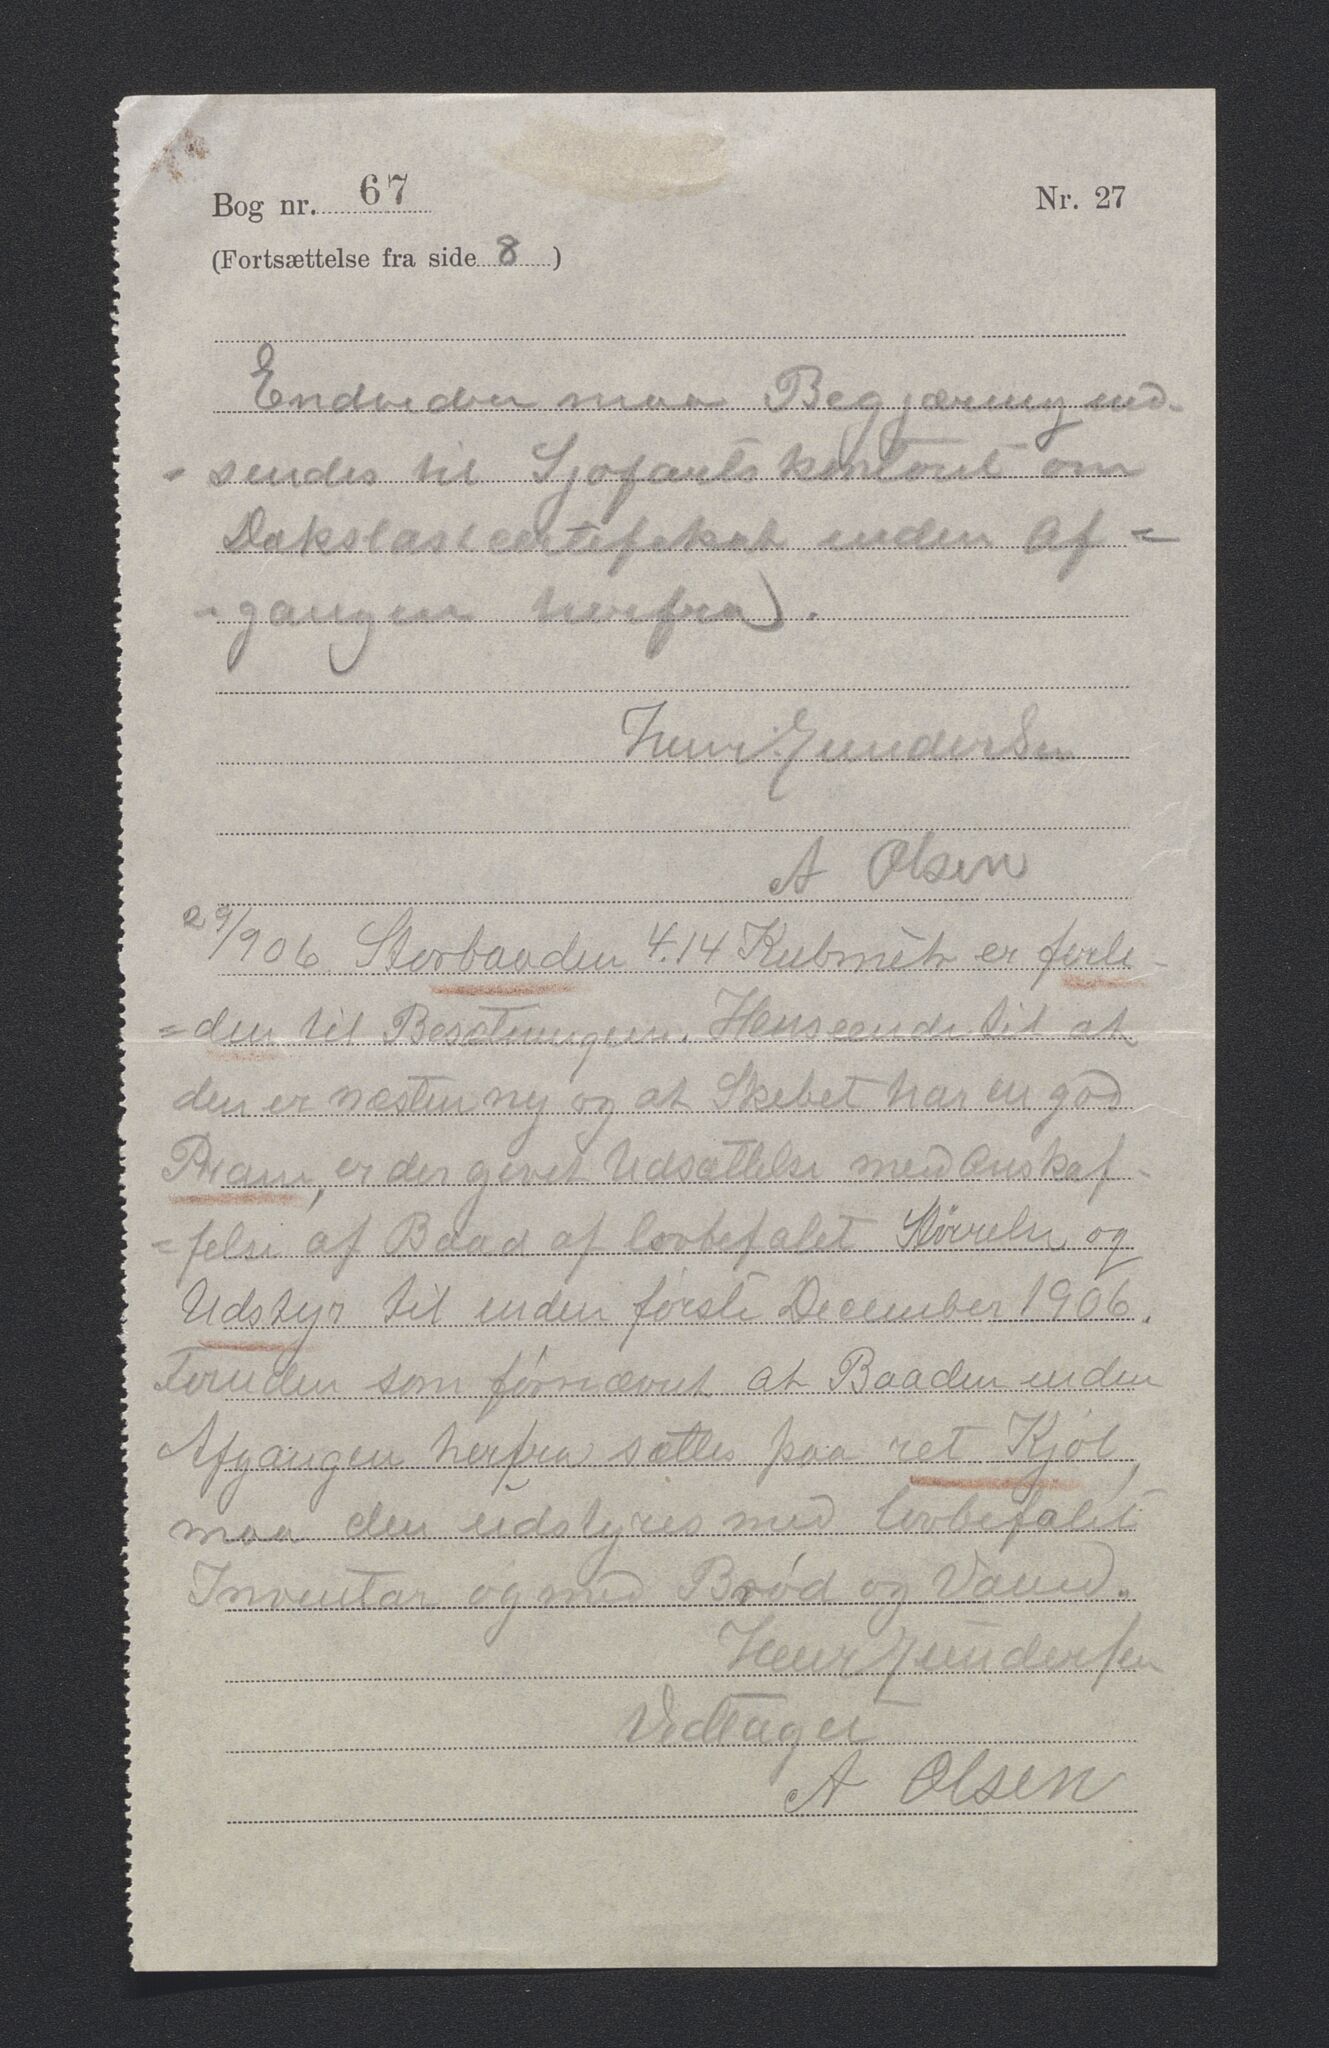 Bog nr. 67
Nr. 27
(Fortsættelse fra side 8)
Endvidere maa Begjæring ind-
- sendes til Sjøfartskontoret om
Dækslastcertifikat inden Af =
- gangen herfra.
Henr. Gundersen
A Olsen
29/906 Storbaaden 4.14 Kubmetr er forli-
= den til Besætningen. Henseende til at
den er næsten ny og at Skibet har en god
Pram, er der givet Udsættelse med Anskaf-
= felse af Baad af lovbefalet Størrelse og
Udstyr til inden første December 1906.
Foruden som førnævnt at Baaden inden
Afgangen herfra sættes paa ret Kjøl,
maa den udstyres med lovbefalet
Inventar og med Brød og Vand.
Henr Gundersen
Vedtaget
A Olsen